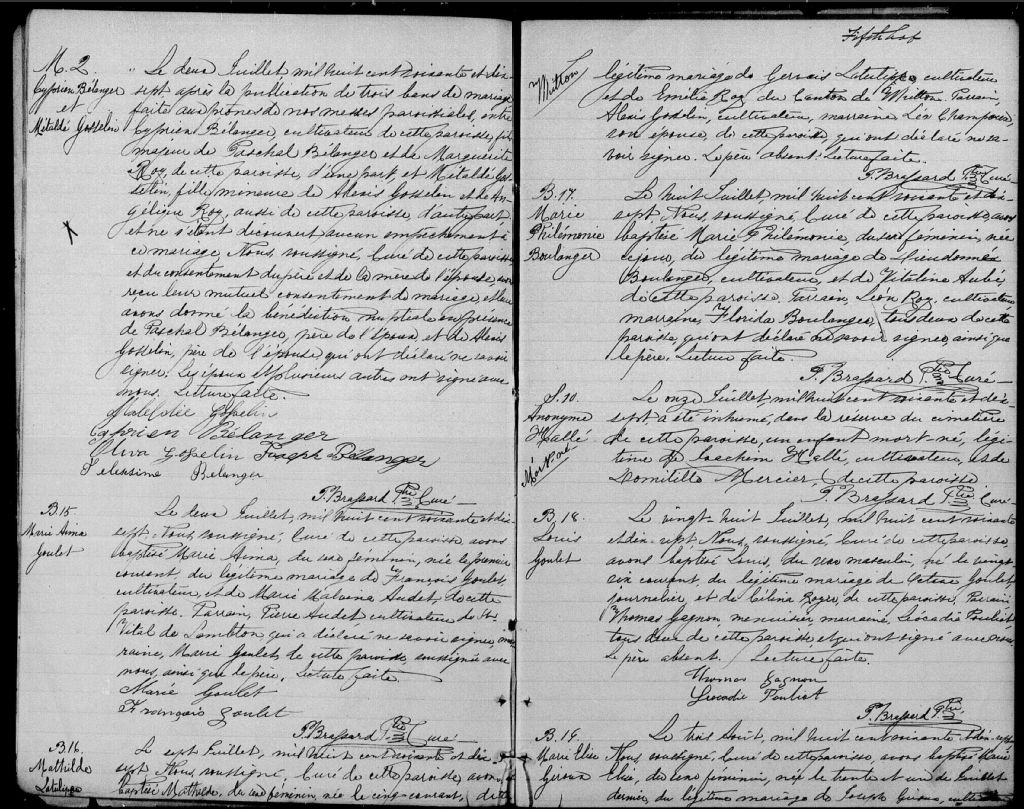 M. 2
Cyprien Bélanger
et
Métaldé Gosselin
Le deux Juillet, mil huit cent soixante et dix-
sept après la publication de trois bans de mariage
faite aux prônes de nos messes paroissiales, entre
Cyprien Bélanger, cultivateur de cette paroisse, fils
majeur de Paschal Bélanger et de Marguerite
Roy, de cette paroisse, d'une part, et Métaldé Gos-
selin, fille mineure de Alexis Gosselin et de An-
gélique Roy, aussi de cette paroisse, d'autre part
et ne s'étant découvert aucun empêchement à
ce mariage, Nous, soussigné, Curé de cette paroisse
et du consentement du père et de la mère de l'épouse, avons
reçu leur mutuel consentement de mariage et leur
avons donné la bénédiction nuptiale en présence
de Paschal Bélanger, père de l'époux, et de Alexis
Gosselin, père de l'épouse qui ont déclaré ne savoir
signer. Les époux et plusieurs autres ont signé avec
nous. Lecture faite.
Gosselin
Cyprien Bélanger
Oliva Gosselin Joseph Bélanger
Bélanger
P. Brassard Ptre Curé
B. 15
Marie Anna
Goulet
Le deux Juillet, mil huit cent soixante et dix-
sept, Nous, soussigné, Curé de cette paroisse avons
baptisé Marie Anna, du sexe féminin, née le premier
courant, du légitime mariage de François Goulet,
cultivateur, et de Marie Malvina Audet, de cette
paroisse. Parrain, Pierre Audet cultivateur de St
Vital de Lambton, qui a déclaré ne savoir signer, mar-
raine, Marie Goulet, de cette paroisse, soussignée avec
nous, ainsi que le père. Lecture faite.
Marie Goulet
François Goulet
P. Brassard Ptre Curé
B. 16.
Mathilde
Latulippe
Le sept Juillet, mil huit cent soixante et dix
sept Nous, soussigné, Curé de cette paroisse, avons
baptisé Mathilde, du sexe féminin, née le cinq courant, du
Fifth Lot
Milton
légitime mariage de Gervais Latulippe, cultivateur
et de Emilie Roy du Canton de Milton, Parrain,
Alexis Gosselin, cultivateur, marraine Léa Champoux,
son épouse, de cette paroisse, qui ont déclaré ne sa-
voir signer. Le père absent. Lecture faite.
P. Brassard Ptre Curé
B. 17.
Marie
Philémonie
Boulanger
Le huit Juillet, mil huit cent soixante et dix
sept, Nous, soussigné, Curé de cette paroisse, avons
baptisé Marie Philémonie, du sexe féminin, née
ce jour, du légitime mariage de Dieudonné
Boulanger, cultivateur, et de Vitaline Aubé,
de cette paroisse. Parrain, Léon Roy, cultivateur
marraine, Florida Boulanger, tous deux de cette
paroisse, qui ont déclaré ne savoir signer, ainsi que
le père. Lecture faite.
P. Brassard Ptre Curé
S. 10.
Anonyme
Hallé
Mort Né
Le onze Juillet, mil huit cent soixante et dix-
sept, a été inhumé, dans la réserve du cimetière
de cette paroisse, un enfant mort-né, légi-
time de Joachim Hallé, cultivateur, et de
Domitille Mercier, de cette paroisse
P. Brassard Ptre Curé
B. 18.
Louis
Goulet
Le vingt-huit Juillet, mil huit cent soixante
et dix-sept Nous, soussigné, Curé de cette paroisse
avons baptisé Louis, du sexe masculin, né le vingt
six courant, du légitime mariage de Goulet
journalier, et de Célina Roger, de cette paroisse. Parrain
Thomas Gagnon, menuisier, marraine, Léocadie Pouliot
tous deux de cette paroisse et qui ont signé avec nous.
Le père absent. Lecture faite.
Thomas Gagnon
Léocadie Pouliot
P. Brassard Ptre
B. 19.
Marie Elise
Giroux
Le trois Août, mil huit cent soixante-dix-sept
Nous, soussigné, Curé de cette paroisse, avons baptisé Marie
Elise, du sexe féminin, née le trente et un de Juillet
dernier, du légitime mariage de Joseph Giroux, cultiv